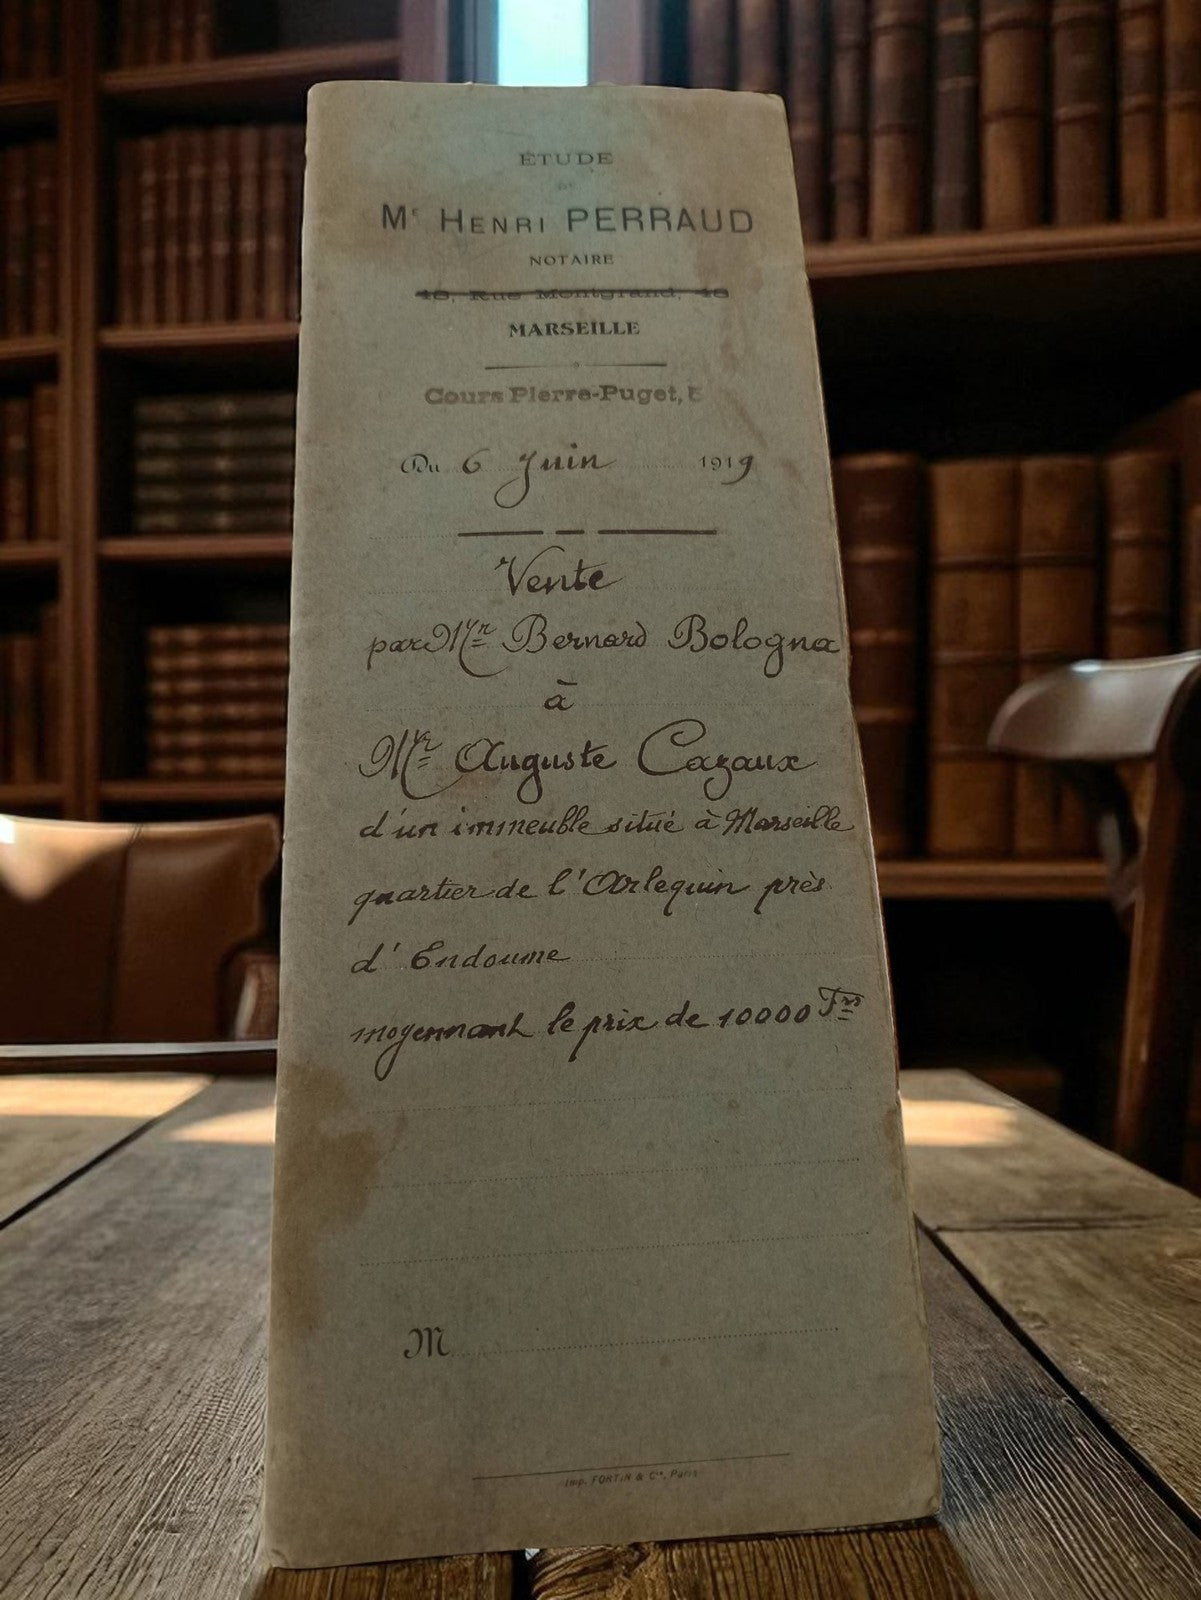 ÉTUDE
DE
Me HENRI PERRAUD
NOTAIRE
48, Rue Montgrand, 48
MARSEILLE
Cours Pierre-Puget,
Du 6 Juin 1919
Vente
par Mr Bernard Bologna
à
Mr Auguste Cazaux
d'un immeuble situé à Marseille
quartier de l'Arlequin près
d'Endoume
moyennant le prix de 10000 Frs
M
Imp. FORTIN & Cie, Paris